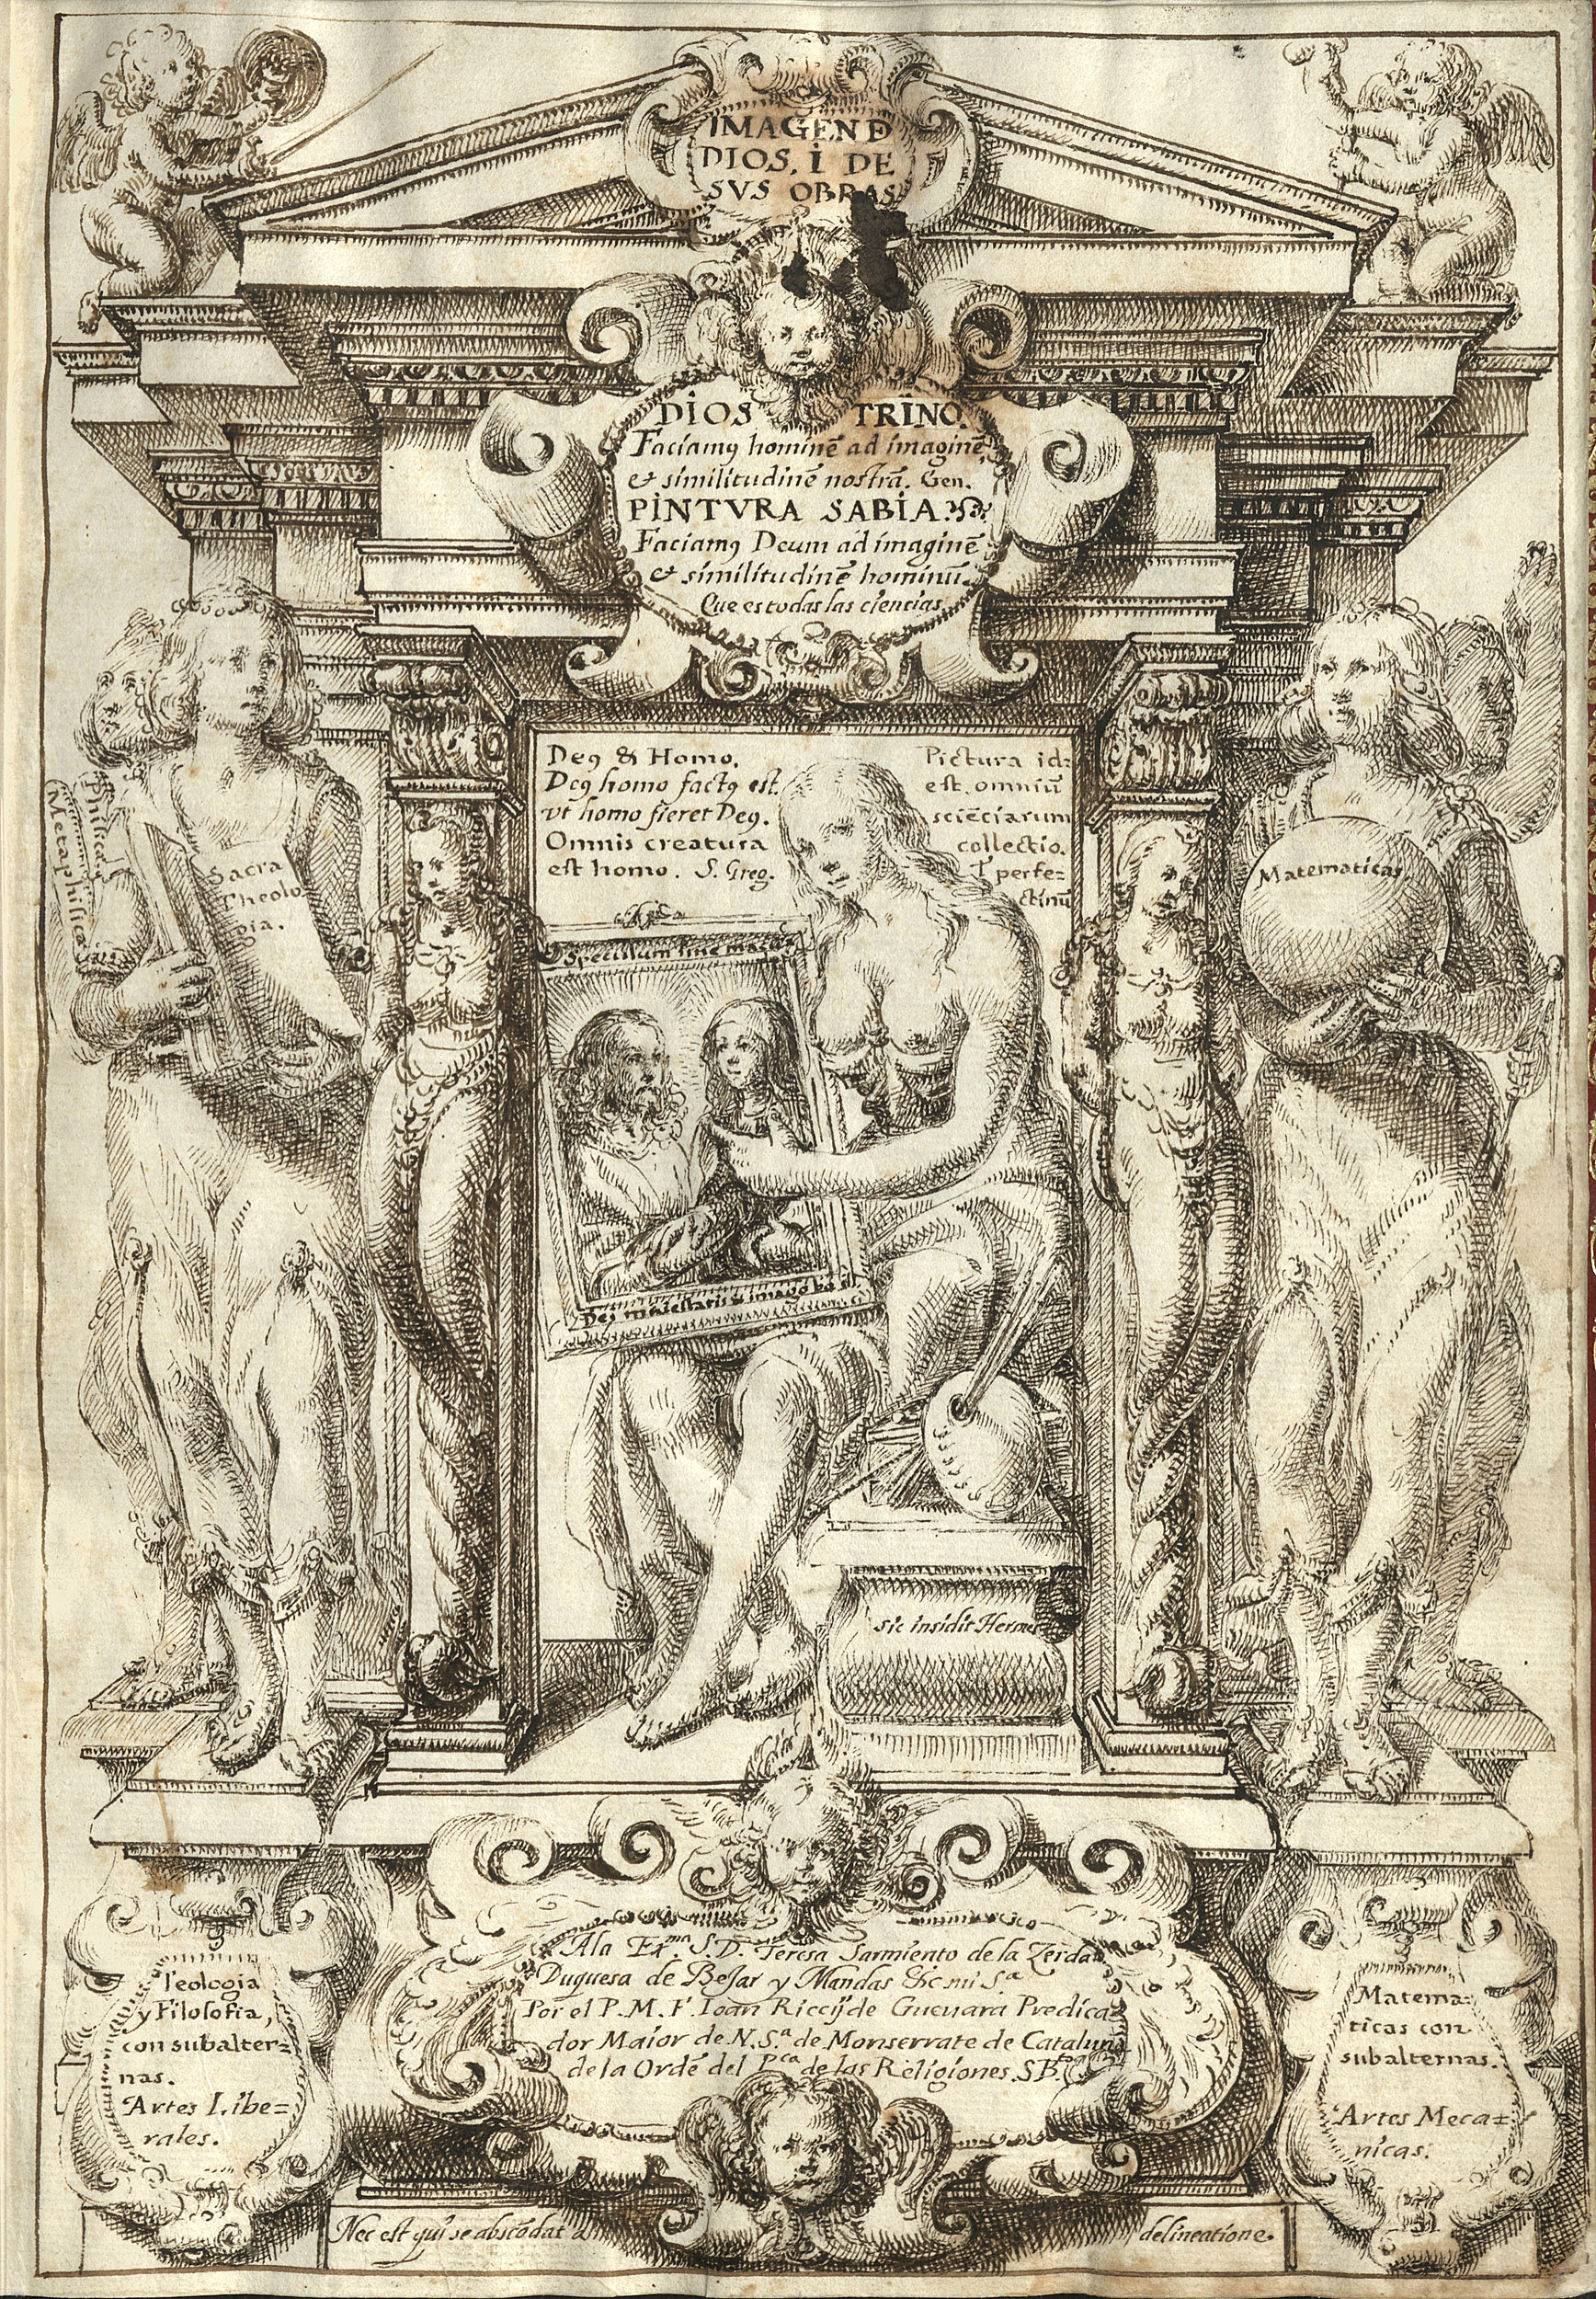 IMAGEN Đ
DIOS, I DE
SVS OBRAS
DIOS TRINO.
Faciamꝰ hominē ad imaginē,
& similitudinē nostrā. Gen.
PINTVRA SABIA.
Faciamꝰ Deum ad imaginē
& similitudinē hominū.
Que es todas las ciencias
Deꝰ & Homo.
Deꝰ homo factꝰ est.
vt homo fieret Deꝰ.
Omnis creatura
est homo. S. Greg.
Pictura id=
est omniū
sciēciarum
collectio.
perfe=
ctinū
Phisica
Metaphisica
Sacra
Theolo
gia.
Matematicas
Speculum sine macula
Dei maiestatis & imago bo
Sic insidit Hermes
Teologia
y Filosofia,
con subalter=
nas.
Artes Libe=
rales.
A la Ex.ma S.D. Teresa Sarmiento de la Zerda
Duquesa de Beſar y Mandas &c. mi S.a
Por el P.M.F. Ioan Riccij de Gueuara Predica
dor Maior de N.S.a de Monserrate de Cataluñ
de la Ordē del P.ca de las Religiones. S.B.to
Matema=
ticas con
subalternas.
Artes Meca=
nicas.
Nec est qui se abscōdat a delineatione.